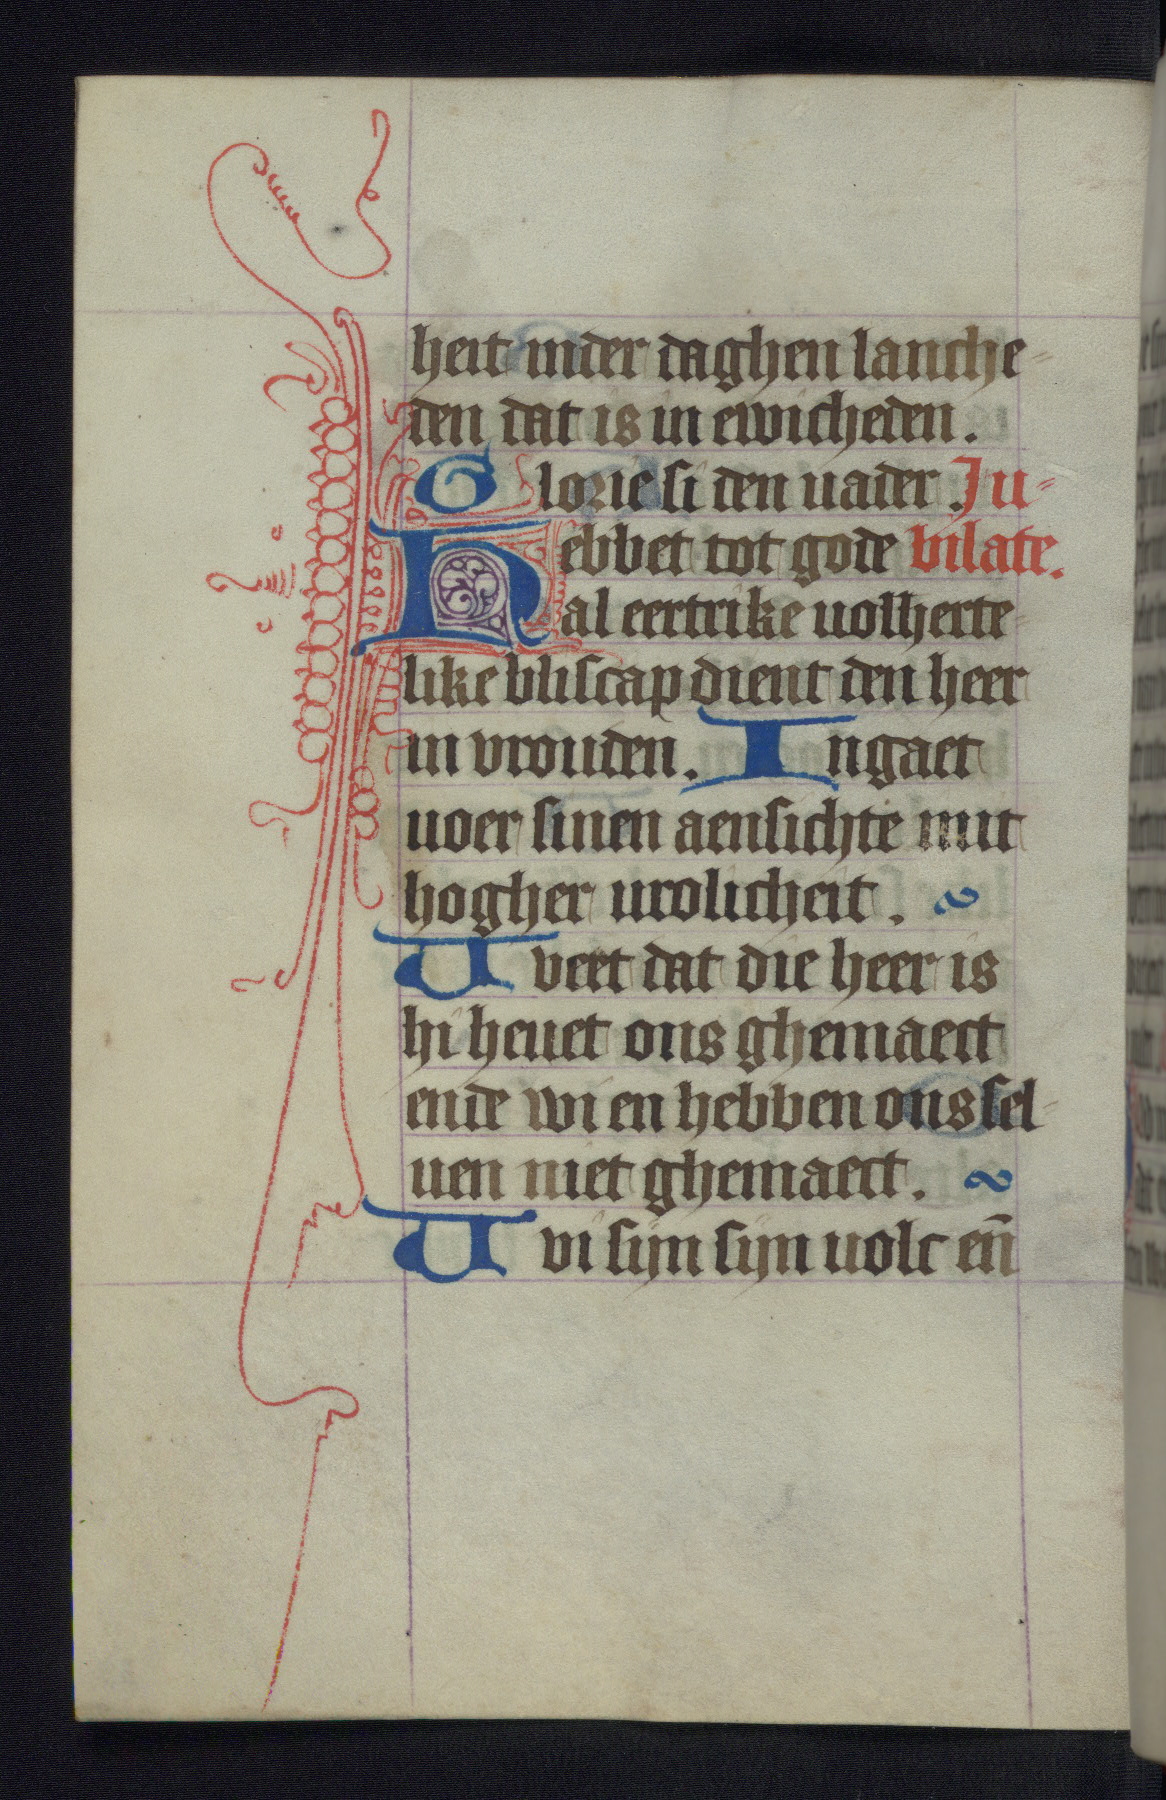 heit inder daghen lanche-
den dat is in ewicheden.
Glorie si den uader. Ju-
Hebbet tot gode bilate.
al eertrike uolherte-
like bliscap dient den heer
in vrouden. Ingaet
uoer sinen aensichte mit
hogher urolicheit.
Weet dat die heer is
hi heuet ons ghemaect
ende wi en hebben ons sel-
uen niet ghemaect.
Wi sijn sijn uolc en̄